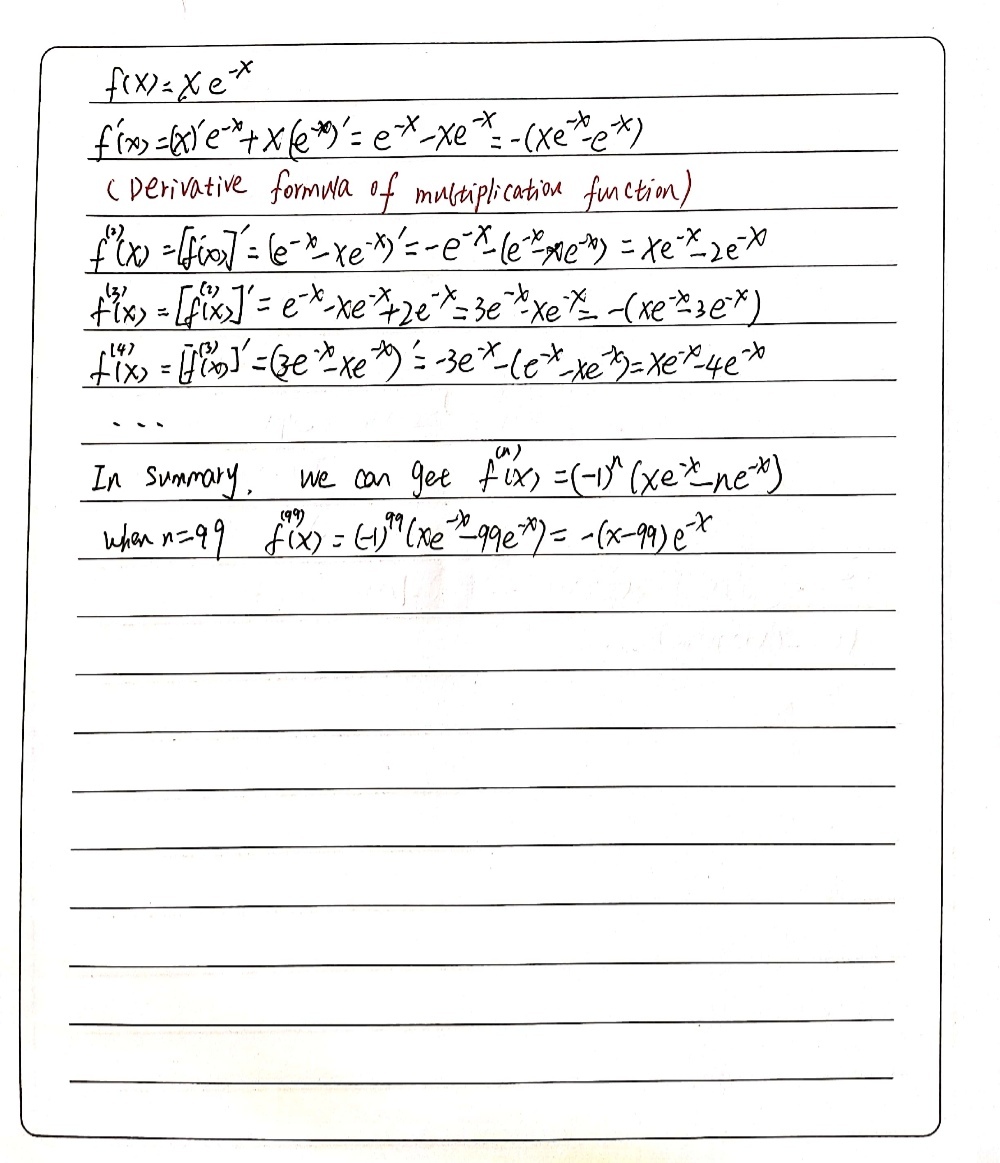 f(x)=xe^{-x}
f'(x)=(x)'e^{-x}+x(e^{-x})'=e^{-x}-xe^{-x}=-(xe^{-x}-e^{-x})
(Derivative formula of multiplication function)
f^{(2)}(x)=[f'(x)]'=(e^{-x}-xe^{-x})'=-e^{-x}-(e^{-x}-xe^{-x})=xe^{-x}-2e^{-x}
f^{(3)}(x)=[f^{(2)}(x)]'=e^{-x}-xe^{-x}+2e^{-x}=3e^{-x}-xe^{-x}=-(xe^{-x}-3e^{-x})
f^{(4)}(x)=[f^{(3)}(x)]'=(3e^{-x}-xe^{-x})'=-3e^{-x}-(e^{-x}-xe^{-x})=xe^{-x}-4e^{-x}
...
In summary, we can get f^{(n)}(x)=(-1)^n(xe^{-x}-ne^{-x})
when n=99 f^{(99)}(x)=(-1)^{99}(xe^{-x}-99e^{-x})=-(x-99)e^{-x}